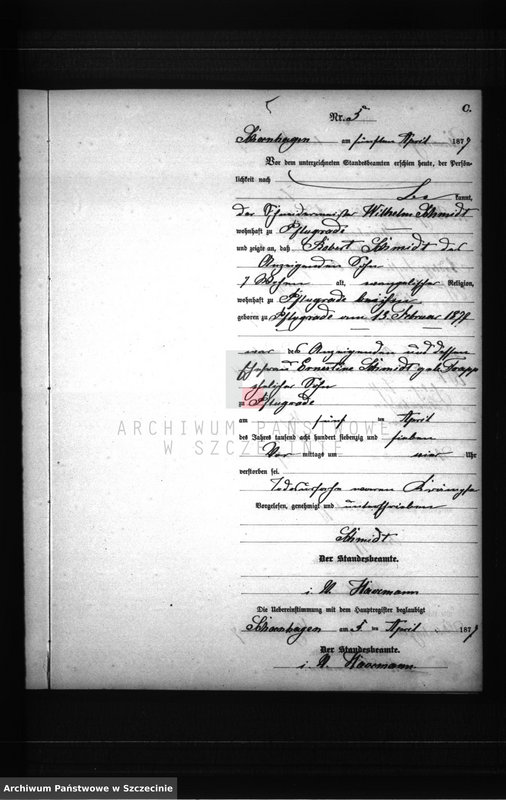 C.
Nr. 5
Schoenhagen am fünften April 1877
Vor dem unterzeichneten Standesbeamten erschien heute, der Persön-
lichkeit nach
be kannt,
der Schneidermeister Wilhelm Schmidt
wohnhaft zu Pflugrade
und zeigte an, daß Robert Schmidt des
Anzeigenden Sohn
7 Wochen alt, evangelischer Religion,
wohnhaft zu Pflugrade bei ihm
geboren zu Pflugrade am 13. Februar 1877
war des Anzeigenden und dessen
Ehefrau Ernestine Schmidt geb.
ehelicher Sohn
zu Pflugrade
am fünf ten April
des Jahres tausend acht hundert siebenzig und sieben
Vor mittags um vier Uhr
verstorben sei.
Todesursache waren Krämpfe
Vorgelesen, genehmigt und unterschrieben
Schmidt
Der Standesbeamte.
i. V. Havemann
Die Uebereinstimmung mit dem Hauptregister beglaubigt
Schoenhagen am 5. ten April 1877
Der Standesbeamte.
i. V. Havemann
ARCHIWUM PAŃSTWOWE
W SZCZECINIE
Archiwum Państwowe w Szczecinie